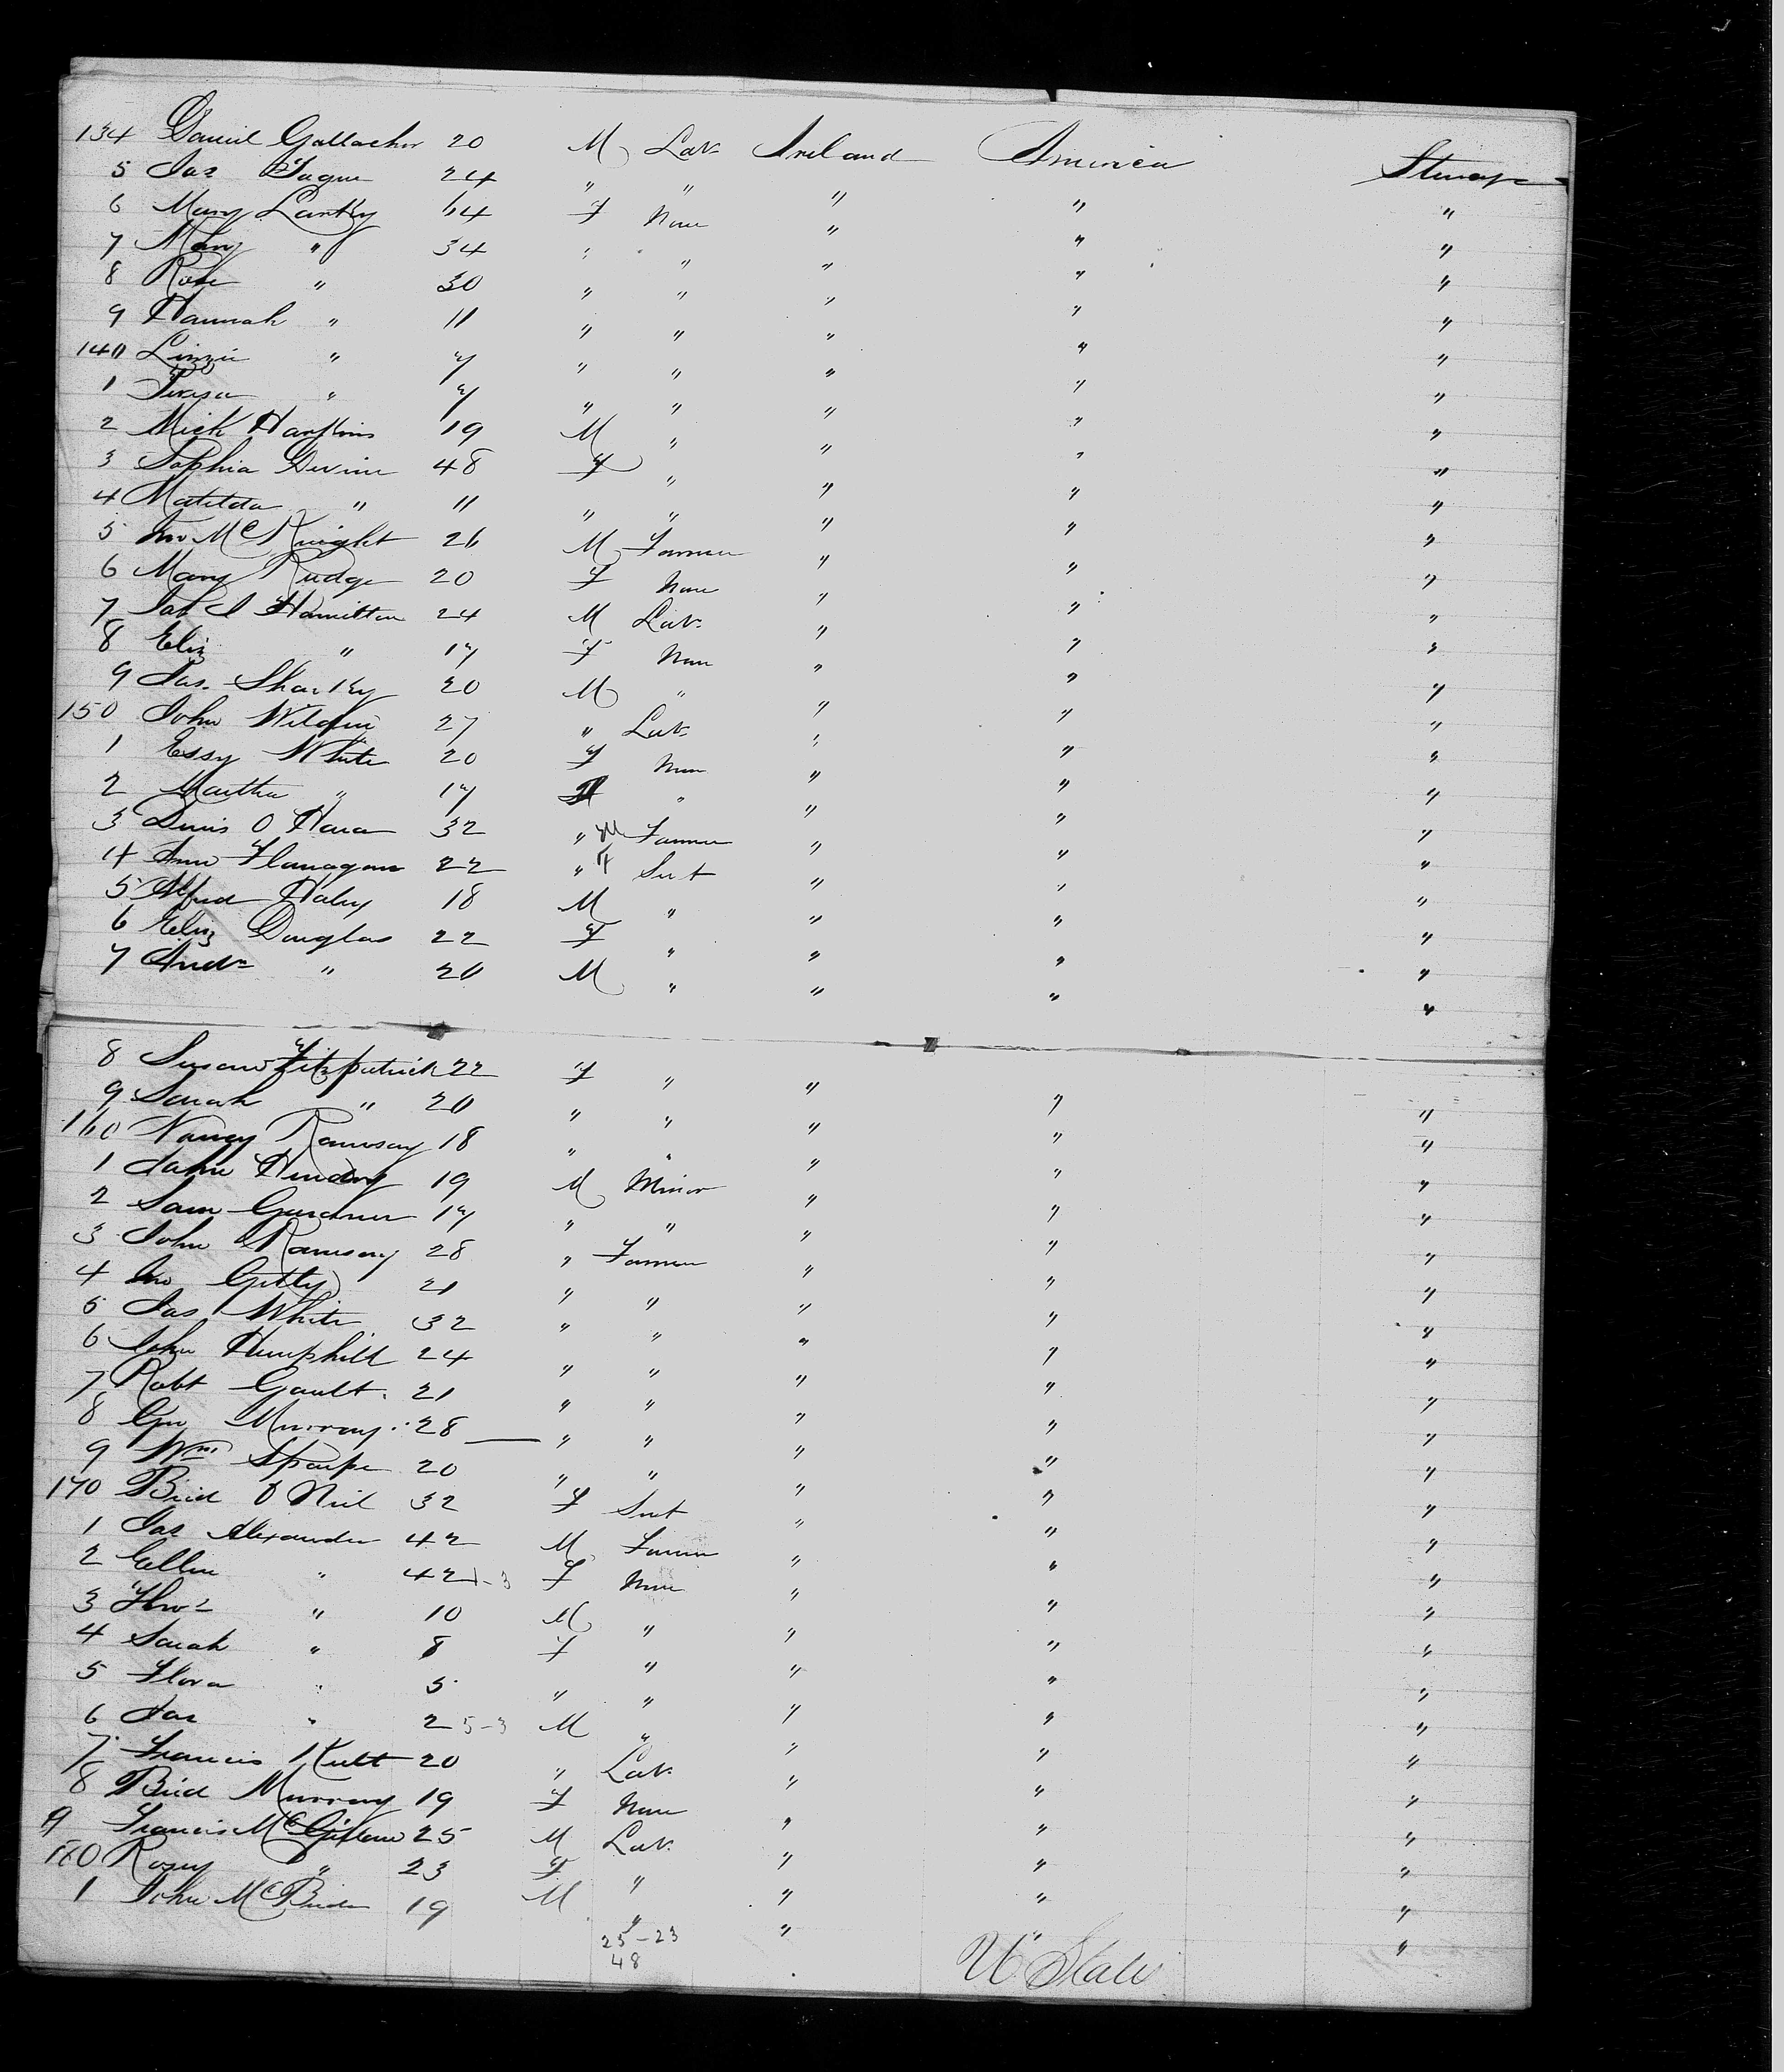 134 Daniel Gallacher 20 M Labr Ireland America Steerage
5 Jas Tague 24 " " " " "
6 Mary Lartky 64 F None " " "
7 Mary " 34 " " " " "
8 Rose " 30 " " " " "
9 Hannah " 11 " " " " "
140 Lizzie " 7 " " " " "
1 Teresa " 7 " " " " "
2 Mick Harkins 19 M " " " "
3 Sophia Devine 48 F " " " "
4 Matilda " 11 " " " " "
5 Jno McKnight 26 M Farmer " " "
6 Mary Rudge 20 F None " " "
7 Hamilton 24 M Labr " " "
8 Eliz " 17 F None " " "
9 Jas. Sharkey 20 M " " " "
150 John 27 " Labr " " "
1 Essy White 20 F None " " "
2 Martha " 17 " " " "
3 Denis O Hara 32 " M Farmer " " "
4 Ann Flanagan 22 " F Sert " " "
5 Alfred Haley 18 M " " " "
6 Eliz Douglas 22 F " " " "
7 Andw " 20 M " " " "
8 Susan Fitzpatrick 22 F " " " "
9 Sarah " 20 " " " " "
160 Nancy Ramsay 18 " " " " "
1 Hendry 19 M Minor " " "
2 Sam Gardner 17 " " " " "
3 John Ramsay 28 " Farmer " " "
4 Jno Getty 21 " " " " "
5 Jas White 32 " " " " "
6 John Hemphill 24 " " " " "
7 Robt Gault 21 " " " " "
8 Geo Murray 28 " " " " "
9 Wm Sharpe 20 " " " " "
170 Brid O Neil 32 F Sert " " "
1 Jas Alexander 42 M Farmer " " "
2 Ellen " 42 F None " " "
3 Thos " 10 M " " " "
4 Sarah " 8 F " " " "
5 Flora " 5 " " " " "
6 Jas " 2 5-3 M " " " "
7 Francis 20 " Labr " " "
8 Brid Murray 19 F None " " "
9 Francis 25 M Labr " " "
180 Rosey " 23 F " " " "
1 John McBride 19 M " " " "
25-23
48
U States